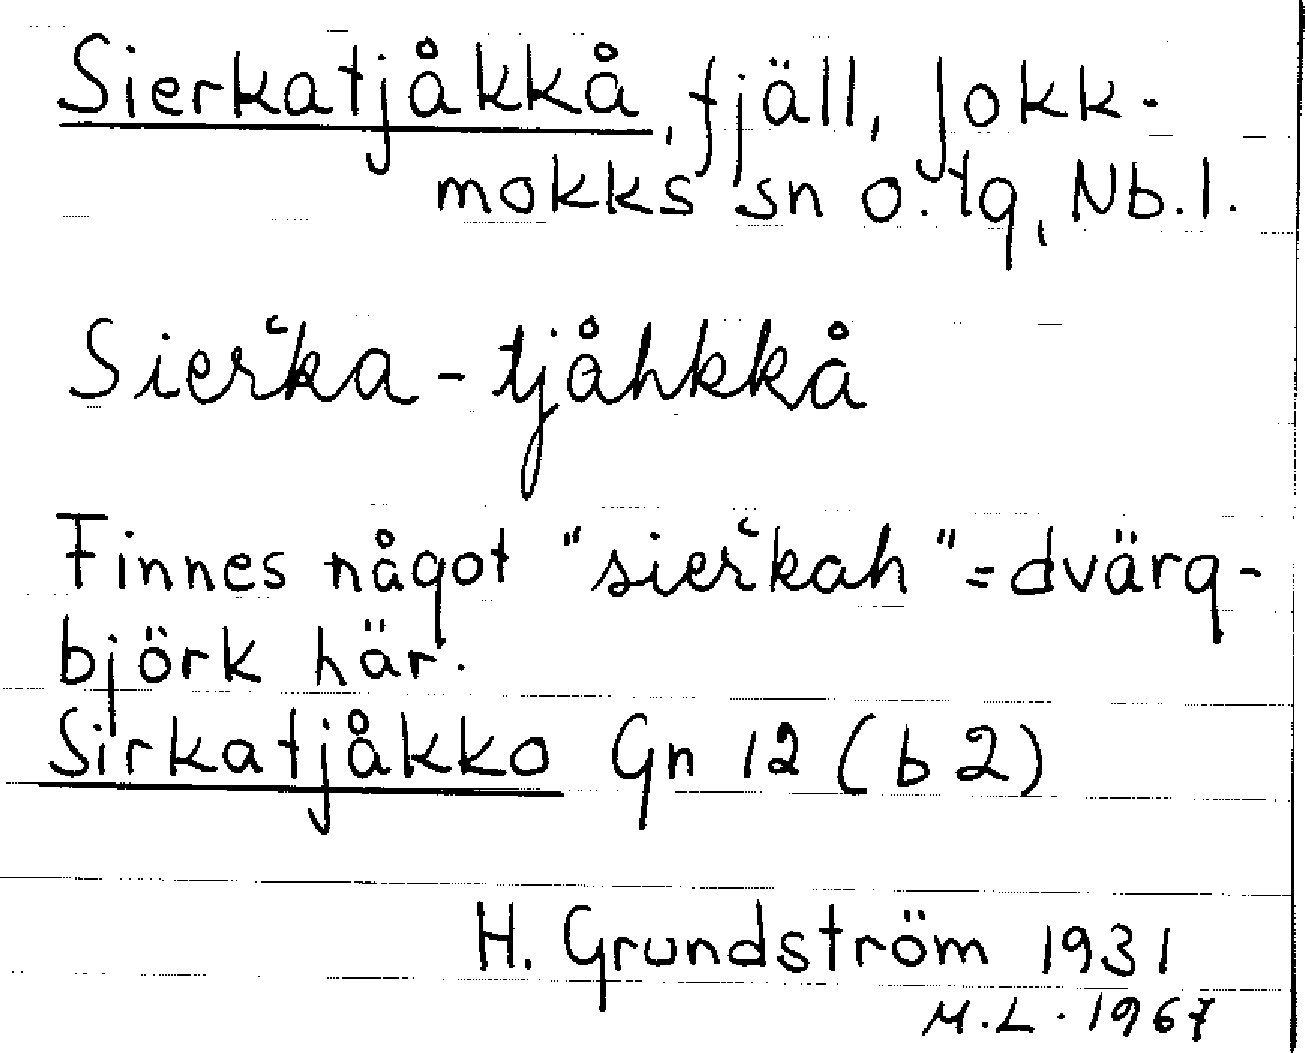 Sierkatjåkkå, fjäll, Jokk-
mokks sn o. tg, Nb. l.
Sierʿka-tjåhkkå
Finnes något "sierʿkah" = dvärg-
björk här.
Sirkatjåkko Gn 12 (b 2)
H. Grundström 1931
M.L. 1967